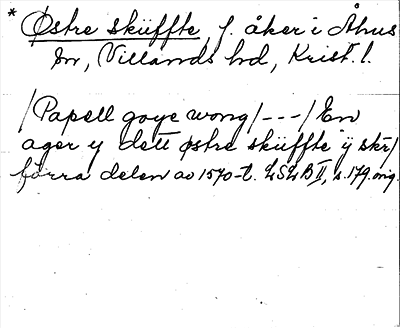 * Østre sküffte, f. åker i Åhus
sn, Villands hd, Krist. l.
/Papell goye wong/---/En
ager y dett østre sküffte ÿ skr/
förra delen av 1570-t. LSLB II, s. 179. orig.